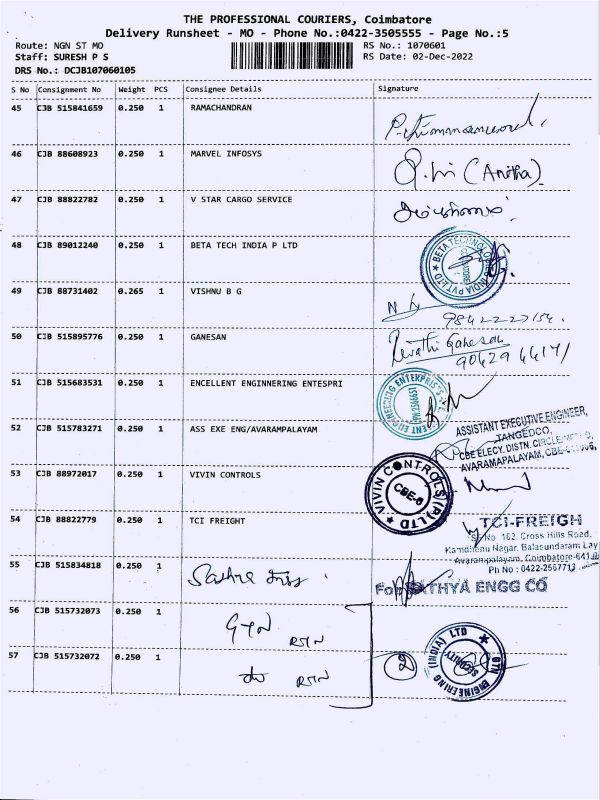 THE PROFESSIONAL COURIERS, Coimbatore
Delivery Runsheet - MO - Phone No.:0422-3505555 - Page No.:5
Route: NGN ST MO
RS No.: 1070601
Staff: SURESH P S
RS Date: 02-Dec-2022
DRS No.: DCJB107060105
S No Consignment No Weight PCS Consignee Details Signature
45 CJB 515841659 0.250 1 RAMACHANDRAN
46 CJB 88608923 0.250 1 MARVEL INFOSYS (Anitha)
47 CJB 88822782 0.250 1 V STAR CARGO SERVICE
48 CJB 89012240 0.250 1 BETA TECH INDIA P LTD
49 CJB 88731402 0.265 1 VISHNU B G
50 CJB 515895776 0.250 1 GANESAN Revathi Ganesan
51 CJB 515683531 0.250 1 ENCELLENT ENGINNERING ENTESPRI
52 CJB 515783271 0.250 1 ASS EXE ENG/AVARAMPALAYAM
ASSISTANT EXECUTIVE ENGINEER,
TANGEDCO,
CBE ELECY. DISTN. CIRCLE
AVARAMPALAYAM,
53 CJB 88972017 0.250 1 VIVIN CONTROLS
VIVIN CONTROLS (P) LTD
CBE-6
54 CJB 88822779 0.250 1 TCI FREIGHT
TCI-FREIGH
S. No 162, Cross Hills Road,
Kamdhenu Nagar, Balasundaram Lay
Avarampalayam, Coimbatore-641
Ph No : 0422-2567713
55 CJB 515834818 0.250 1
ENGG CO
56 CJB 515732073 0.250 1 GTN
57 CJB 515732072 0.250 1
2
GTN ENGINEERING (INDIA) LTD
SECURITY